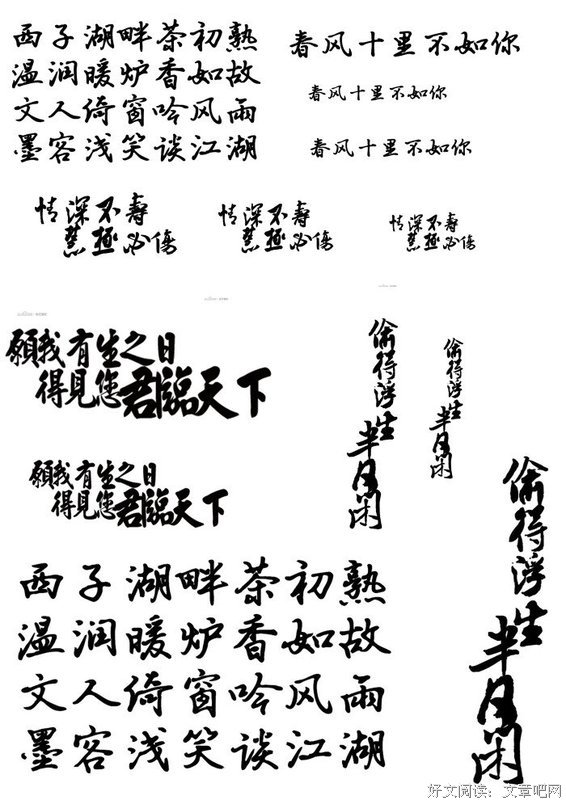 西子湖畔茶初熟
温润暖炉香如故
文人倚窗吟风雨
墨客浅笑谈江湖
春风十里不如你
春风十里不如你
春风十里不如你
情深不寿
慧極必傷
情深不寿
慧極必傷
情深不寿
慧極必傷
願我有生之日
得見您君臨天下
願我有生之日
得見您君臨天下
偷得浮生半日闲
偷得浮生半日闲
偷得浮生半日闲
西子湖畔茶初熟
温润暖炉香如故
文人倚窗吟风雨
墨客浅笑谈江湖
好文阅读：文章吧网